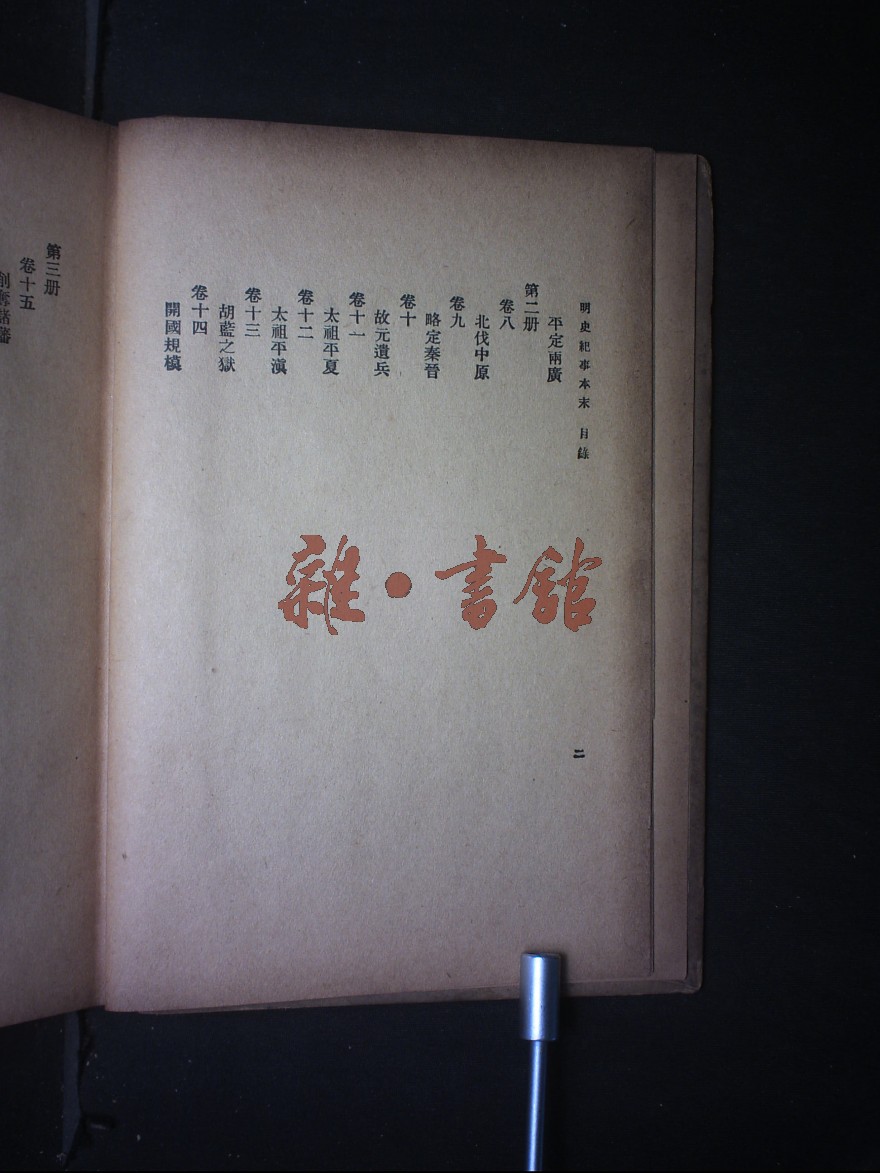 明史紀事本末 目錄
平定兩廣
第二册
卷八
北伐中原
卷九
略定秦晉
卷十
故元遺兵
卷十一
太祖平夏
卷十二
太祖平滇
卷十三
胡藍之獄
卷十四
開國規模
二
第三册
卷十五
削奪諸藩
雜·書館